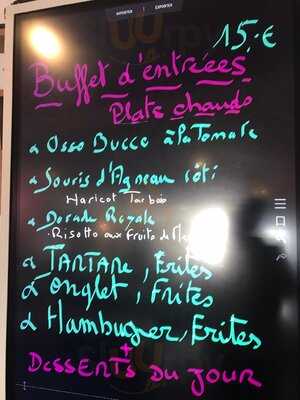 IMPORTER EXPORTER
15.€
Buffet d'entrées
Plats chauds
Osso Bucco à la Tomate
Souris d'Agneau rôti
Haricot Tarbais
Dorade Royale
. Risotto aux Fruits de Mer
TARTARE, Frites
Onglet, Frites
Hambugner, Frites
+
DESSERTS DU JOUR